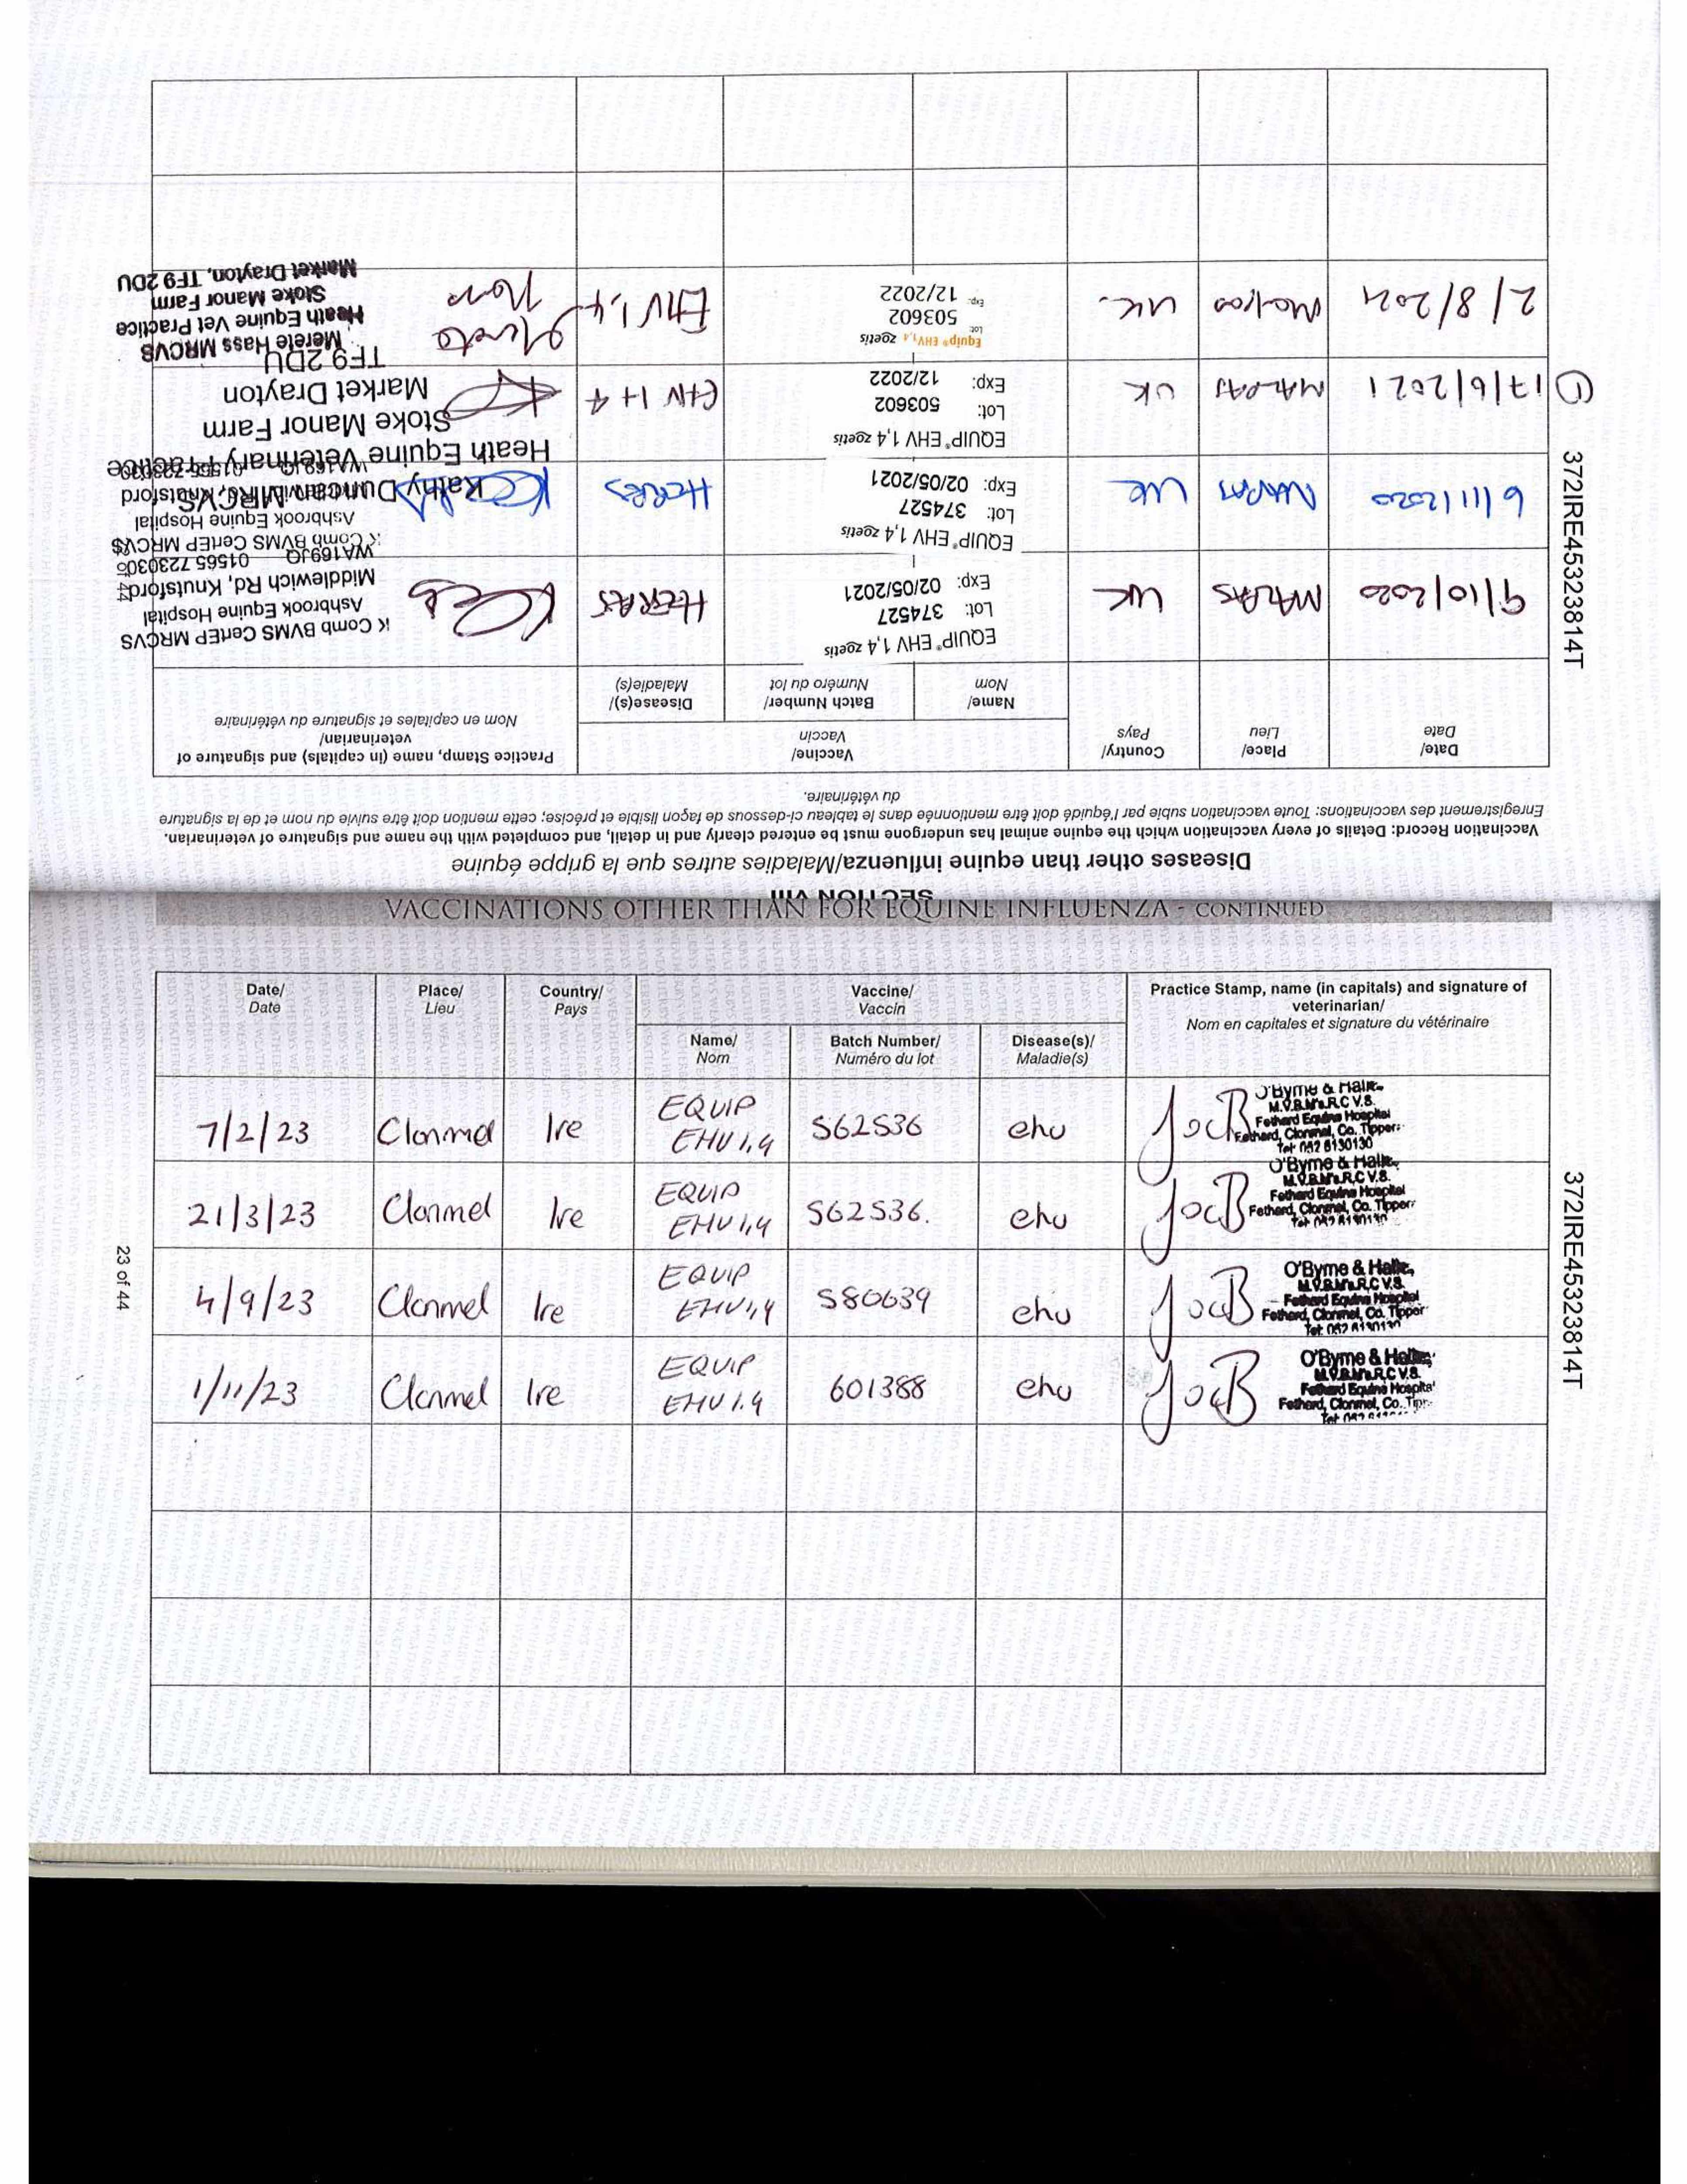 SECTION VIII
Diseases other than equine influenza/Maladies autres que la grippe équine
Vaccination Record: Details of every vaccination which the equine animal has undergone must be entered clearly and in detail, and completed with the name and signature of veterinarian.
Enregistrement des vaccinations: Toute vaccination subie par l'équidé doit être mentionnée dans le tableau ci-dessous de façon lisible et précise; cette mention doit être suivie du nom et de la signature
du vétérinaire.
Date/
Date
Place/
Lieu
Country/
Pays
Vaccine/
Vaccin
Name/
Nom
Batch Number/
Numéro du lot
Disease(s)/
Maladie(s)
Practice Stamp, name (in capitals) and signature of
veterinarian/
Nom en capitales et signature du vétérinaire
9/10/2020
MALPAS
UK
EQUIP® EHV 1,4 zoetis
Lot: 374527
Exp: 02/05/2021
HERPES
K Comb BVMS CertEP MRCVS
Ashbrook Equine Hospital
Middlewich Rd, Knutsford
WA169JQ 01565 723030
6/11/2020
MALPAS
UK
EQUIP® EHV 1,4 zoetis
Lot: 374527
Exp: 02/05/2021
HERPES
K Comb BVMS CertEP MRCVS
Ashbrook Equine Hospital
Knutsford
WA169JQ 01565 723030
① 17/6/2021
MALPAS
UK
EQUIP® EHV 1,4 zoetis
Lot: 503602
Exp: 12/2022
EHV 1+4
Kathy Duncan MRCVS
Heath Equine Veterinary Practice
Stoke Manor Farm
Market Drayton
TF9 2DU
2/8/2021
Malpas
UK.
Equip® EHV1,4 zoetis
Lot: 503602
Exp: 12/2022
EHV 1,4
Merete Hass MRCVS
Heath Equine Vet Practice
Stoke Manor Farm
Market Drayton, TF9 2DU
372IRE45323814T
VACCINATIONS OTHER THAN FOR EQUINE INFLUENZA - CONTINUED
Date/
Date
Place/
Lieu
Country/
Pays
Vaccine/
Vaccin
Name/
Nom
Batch Number/
Numéro du lot
Disease(s)/
Maladie(s)
Practice Stamp, name (in capitals) and signature of
veterinarian/
Nom en capitales et signature du vétérinaire
7/2/23
Clonmel
Ire
EQUIP
EHV 1,4
562536
ehv
Fethard Equine Hospital
Fethard, Clonmel, Co. Tipper
Tel: 052 6130130
21/3/23
Clonmel
Ire
EQUIP
EHV 1,4
562536.
ehv
O'Byrne & Halley
M.V.B. M.R.C.V.S.
Fethard Equine Hospital
Fethard, Clonmel, Co. Tipper
4/9/23
Clonmel
Ire
EQUIP
EHV 1,4
580639
ehv
O'Byrne & Halley,
M.V.B. M.R.C.V.S.
Fethard Equine Hospital
Fethard, Clonmel, Co. Tipper
1/11/23
Clonmel
Ire
EQUIP
EHV 1.4
601388
ehv
O'Byrne & Halley,
M.V.B. M.R.C.V.S.
Fethard Equine Hospital
Fethard, Clonmel, Co. Tipp
23 of 44
372IRE45323814T